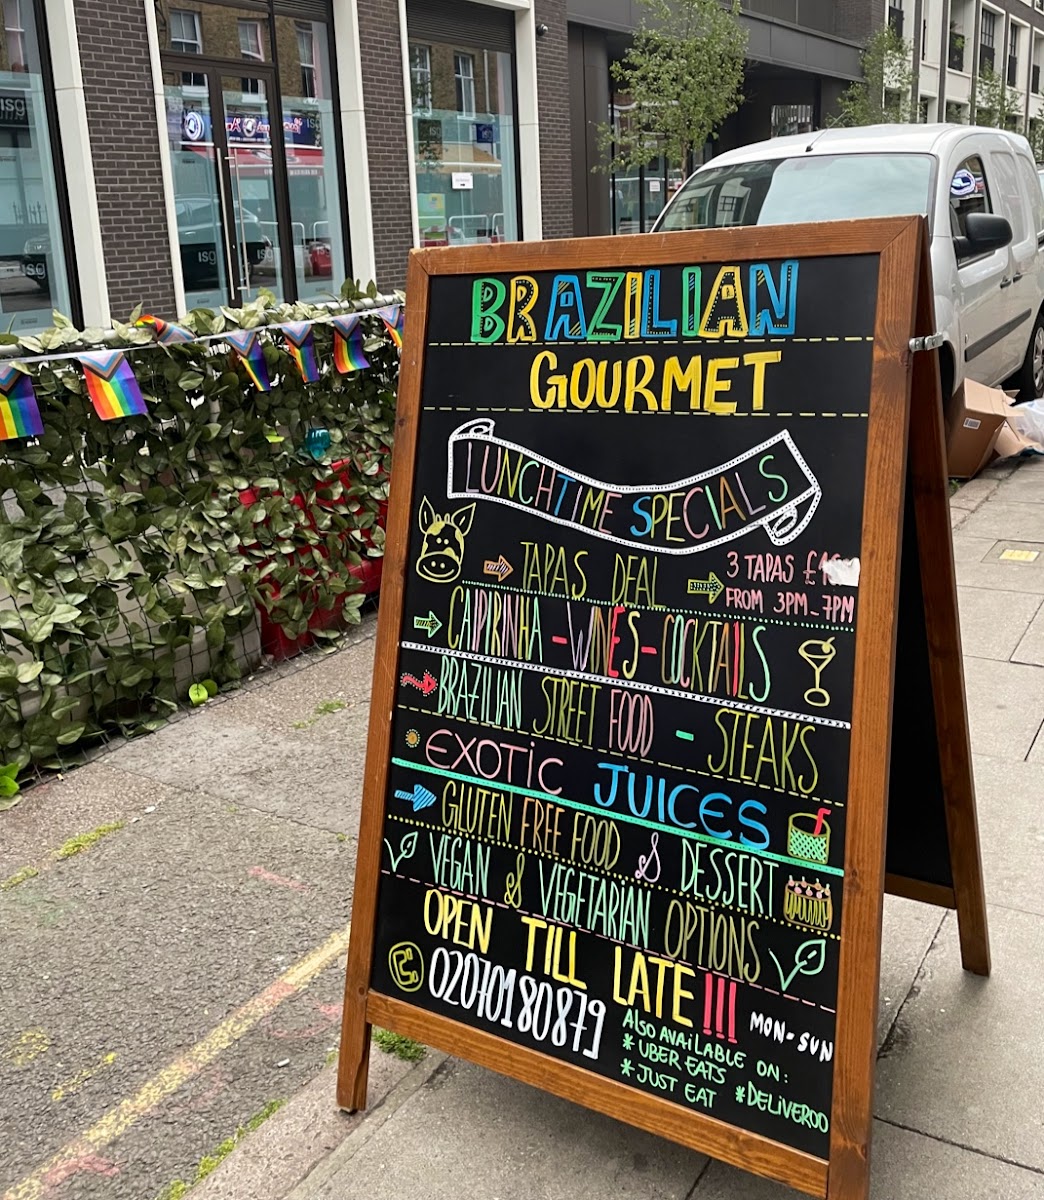 BRAZILIAN
GOURMET
LUNCHTIME SPECIALS
TAPAS DEAL
3 TAPAS
FROM 3PM_7PM
CAIPIRINHA - WINES - COCKTAILS
BRAZILIAN STREET FOOD - STEAKS
EXOTIC JUICES
GLUTEN FREE FOOD & DESSERT
VEGAN & VEGETARIAN OPTIONS
OPEN TILL LATE!!!
02070180879
MON-SUN
ALSO AVAILABLE ON:
* UBER EATS
* JUST EAT
* DELIVEROO
isg
isg
isg
isg
isg